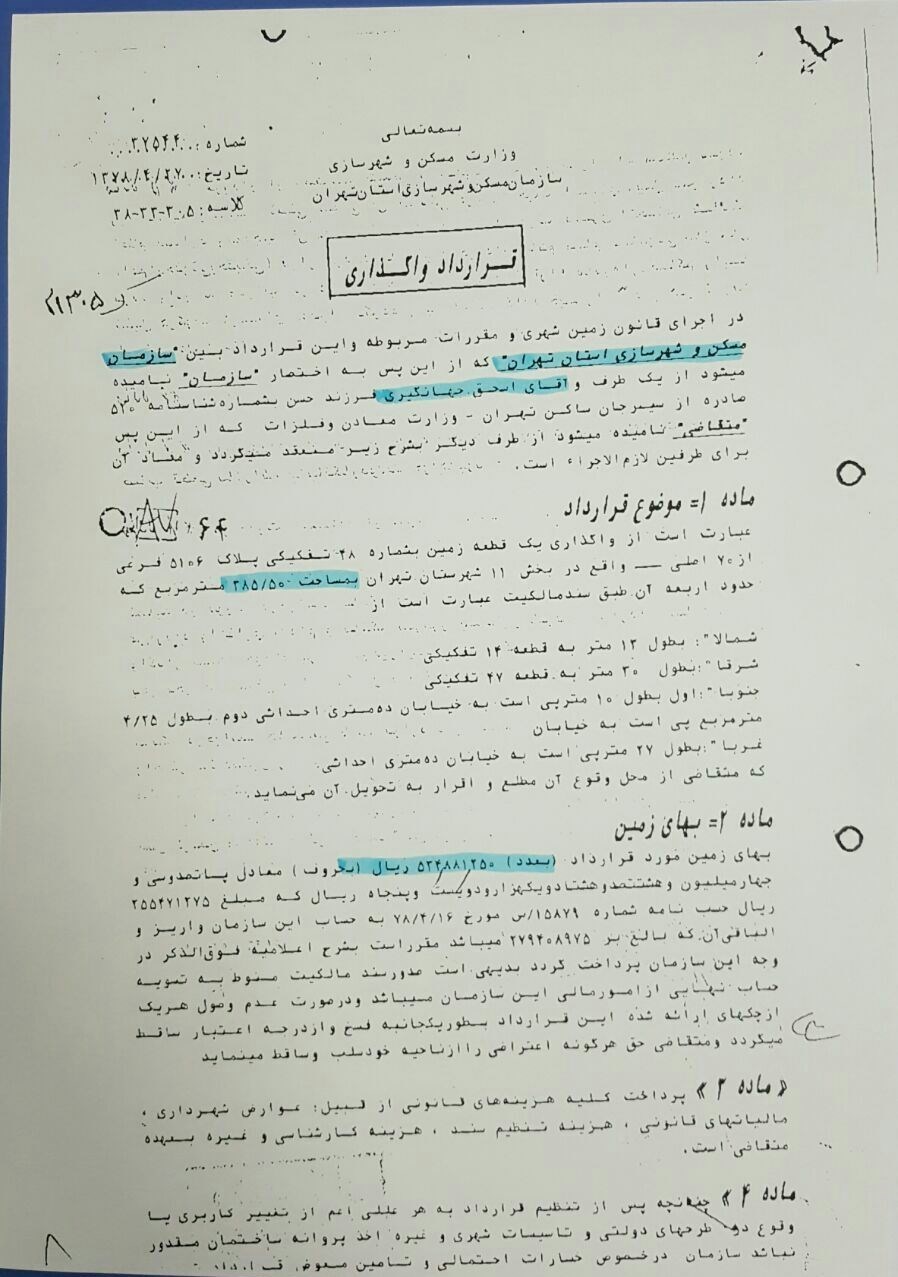 بسمه تعالی
وزارت مسکن و شهرسازی
سازمان مسکن و شهرسازی استان تهران
شماره: ۳۲۵۴۴
تاریخ: ۱۳۷۸/۴/۲۷
کلاسه: ۳۰۵-۳۳-۳۸
قرارداد واگذاری
در اجرای قانون زمین شهری و مقررات مربوطه واین قرارداد بین "سازمان
مسکن و شهرسازی استان تهران" که از این پس به اختصار "سازمان" نامیده
میشود از یک طرف و آقای اسحق جهانگیری فرزند حسن بشماره شناسنامه ۵۲۰
صادره از سیرجان ساکن تهران - وزارت معادن وفلزات که از این پس
"متقاضی" نامیده میشود از طرف دیگر بشرح زیر منعقد میگردد و مفاد آن
برای طرفین لازم الاجراء است.
ماده ۱= موضوع قرارداد
عبارت است از واگذاری یک قطعه زمین بشماره ۴۸ تفکیکی پلاک ۵۱۰۶ فرعی
از ۷۰ اصلی — واقع در بخش ۱۱ شهرستان تهران بمساحت ۳۸۵/۵۰ مترمربع که
حدود اربعه آن طبق سندمالکیت عبارت است از
شمالا": بطول ۱۳ متر به قطعه ۱۴ تفکیکی
شرقا": بطول ۳۰ متر به قطعه ۴۷ تفکیکی
جنوبا": اول بطول ۱۰ مترپی است به خیابان ده‌متری احداثی دوم بطول ۴/۲۵
مترمربع پی است به خیابان
غربا": بطول ۲۷ مترپی است به خیابان ده‌متری احداثی.
که متقاضی از محل وقوع آن مطلع و اقرار به تحویل آن می‌نماید.
ماده ۲= بهای زمین
بهای زمین مورد قرارداد (بعدد) ۵۳۴۸۸۱۲۵۰ ریال (بحروف) معادل پانصدوسی و
چهارمیلیون وهشتصدوهشتادویکهزارودویست وپنجاه ریال که مبلغ ۲۵۵۴۷۱۲۷۵
ریال حسب نامه شماره ۱۵۸۷۹/س مورخ ۷۸/۴/۱۶ به حساب این سازمان واریز و
الباقی آن که بالغ بر ۲۷۹۴۰۸۹۷۵ میباشد مقرراست بشرح اعلامیه فوق‌الذکر در
وجه این سازمان پرداخت گردد بدیهی است صدورسند مالکیت منوط به تسویه
حساب نهایی ازامورمالی این سازمان میباشد ودرصورت عدم وصول هریک
ازچکهای ارائه شده این قرارداد بطوریکجانبه فسخ وازدرجه اعتبار ساقط
میگردد ومتقاضی حق هرگونه اعتراضی راازناحیه خودسلب وساقط مینماید
« ماده ۳ » پرداخت کلیه هزینه‌های قانونی از قبیل: عوارض شهرداری،
مالیاتهای قانونی، هزینه تنظیم سند، هزینه کارشناسی و غیره بعهده
متقاضی است.
ماده ۴ » چنانچه پس از تنظیم قرارداد به هر عللی اعم از تغییر کاربری یا
وقوع در طرحهای دولتی و تاسیسات شهری و غیره اخذ پروانه ساختمان مقدور
نباشد سازمان درخصوص خسارات احتمالی و تامین معوض
۸